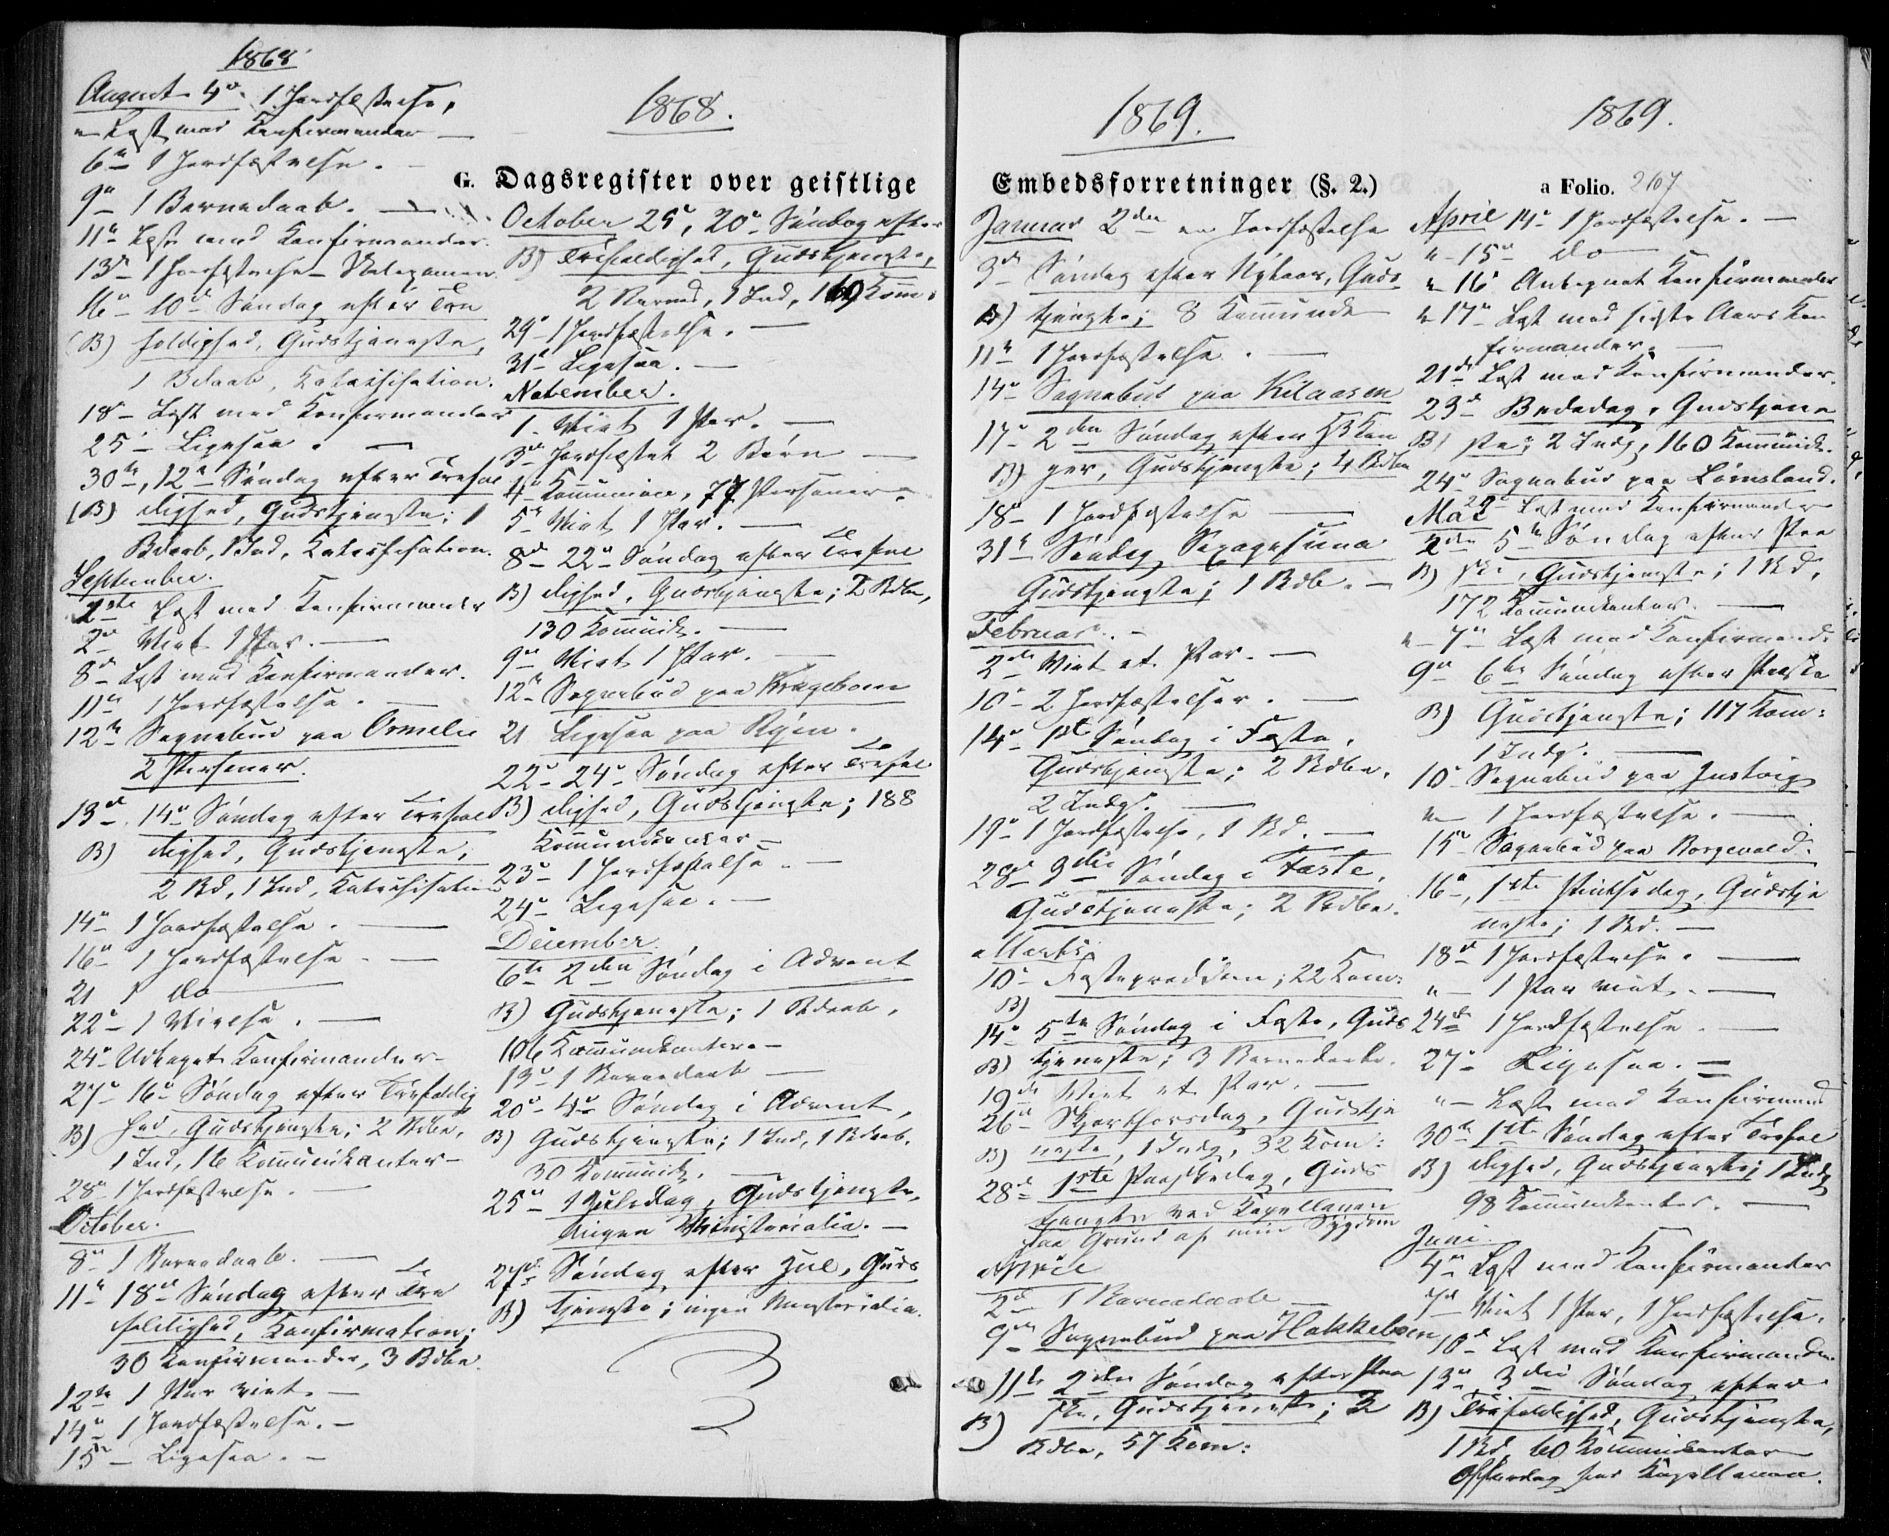 1868
August 4de 1 Jordfæstelse,
" Læst med Konfirmander —
6te 1 Jordfæstelse. —
9de 1 Barnedaab. —
11te Læst med Konfirmander.
13de 1 Jordfæstelse —
16de 10de Søndag efter Tre
(B) foldighed, Gudstjeneste,
1 Bdaab, Katekisation.
18de Læst med Konfirmander
25de Ligesaa. —
30te, 12te Søndag efter Trefol
(B) dighed, Gudstjeneste; 1
Bdaab, 1 Ind, Katekisation.
September.
1ste Læst med Konfirmander
2den Viet 1 Par. —
8de Læst med Konfirmander.
11te 1 Jordfæstelse. —
12te Sognebud paa Ormelie
2 Personer.
13de 14de Søndag efter Trefol
B) dighed, Gudstjeneste,
2 Bd, 1 Ind, Katekisation
14de 1 Jordfæstelse. —
16de 1 Jordfæstelse. —
21 1 do —
22de 1 Vielse. —
24de Udtaget Konfirmander —
27de 16de Søndag efter Trefoldig
B) hed, Gudstjeneste; 2 Bdbe,
1 Ind, 16 Kommunikanter —
28de 1 Jordfæstelse. —
October.
8de 1 Barnedaab. —
11te 18de Søndag efter Tre
foldighed, Konfirmation;
30 Konfirmander, 3 Bdbe.
12te 1 Par viet. —
14de 1 Jordfæstelse. —
15de Ligesaa. —
1868.
G. Dagsregister over geistlige
October 25de, 20de Søndag efter
B) Trefoldighed, Gudstjeneste,
2 Barned, 1 Ind, 169 Kom.
29de 1 Jordfæstelse. —
31te Ligesaa. —
November.
1. Viet 1 Par. —
3die Jordfæstet 2 Børn —
4de Kommunion, 77 Personer.
5te Viet 1 Par. —
8de 22de Søndag efter Trefol
B) dighed, Gudstjeneste; 2 Bdbe,
130 Kommunik. —
9de Viet 1 Par. —
12te Sognebud paa Kragebom
21 Ligesaa paa Røjen.
22de 24de Søndag efter Trefol
B) dighed, Gudstjeneste; 188
Kommunikanter —
23de 1 Jordfæstelse. —
24de Ligesaa. —
December.
6te 2den Søndag i Advent
B) Gudstjeneste; 1 Bdaab,
106 Kommunikanter. —
13de 1 Barnedaab —
20de 4de Søndag i Advent,
B) Gudstjeneste; 1 Ind, 1 Bdaab.
30 Kommunik. —
25de 1 Juledag, Gudstjeneste,
ingen Ministerialia. —
27de Søndag efter Jul, Guds
B) tjeneste; ingen Ministerialia.
1869.
Embedsforretninger (§. 2.)
Januar 2den en Jordfæstelse
3die Søndag efter Nytaar, Guds
B) tjeneste; 8 Komunik
11te 1 Jordfæstelse. —
14de Sognebud paa Kilaasen
17de 2den Søndag efter H3 Kon
B) ger, Gudstjeneste; 4 Bdbe
18de 1 Jordfæstelse —
31te Søndag Sexagesima
Gudstjeneste; 1 Bdb. —
Februar. —
2den Viet et Par. —
10de 2 Jordfæstelser. —
14de 1ste Søndag i Faste,
Gudstjeneste; 2 Bdbe,
2 Indg. —
19de 1 Jordfæstelse, 1 Bd. —
28de 3die Søndag i Faste,
Gudstjeneste; 2 Bdbe.
Marts.
10de Fasteprædiken; 22 Kom:
B)
14de 5te Søndag i Faste, Guds
B) tjeneste; 3 Barnedaabe.
19de Viet et Par. —
26de Skjerthorsdag, Gudstje
B) neste, 1 Indg, 32 Kom:
28de 1ste Paaskedag, Guds
tjeneste ved Kapellanen
paa Grund af min Sygdom
April
2den 1 Barnedaab —
9de Sognebud paa Hakkeboen
11te 2den Søndag efter Paa
B) ske, Gudstjeneste; 2
Bdbe, 57 Kom:
1869.
a Folio. 267
April 14de 1 Jordfæstelse. —
" 15de do —
" 16de Antegnet Konfirmander
" 17de Læst med sidste Aars Kon
firmander. —
21de Læst med Konfirmander.
23de Bededag, Gudstjene
B) ste; 2 Indg, 160 Kommunik.
24de Sognebud paa Lømsland.
28de Læst med Konfirmander
Mai
2den 5te Søndag efter Paa
B) ske, Gudstjeneste; 1 Bd,
172 Kommunikanter. —
" 7de Læst med Konfirmand:
9de 6te Søndag efter Paaske
B) Gudstjeneste; 117 Kom:
1 Indg. —
10de Sognebud paa Justvig
" 1 Jordfæstelse. —
15de Sognebud paa Borgevold.
16de, 1ste Pintsedag, Gudstje
neste; 1 Bd. —
18de 1 Jordfæstelse. —
" 1 Par viet. —
24de 1 Jordfæstelse. —
27de Ligesaa. —
" Læst med Konfirmand
30te 1ste Søndag efter Trefol
B) dighed, Gudstjeneste; 1 Indg
98 Kommunikanter. —
Juni.
4de Læst med Konfirmander
7de Viet 1 Par, 1 Jordfæstelse.
10de Læst med Konfirmander
13de 3die Søndag efter
B) Trefoldighed, Gudstjeneste,
1 Bd, 60 Kommunikanter
Offerdag for Kapellanen.